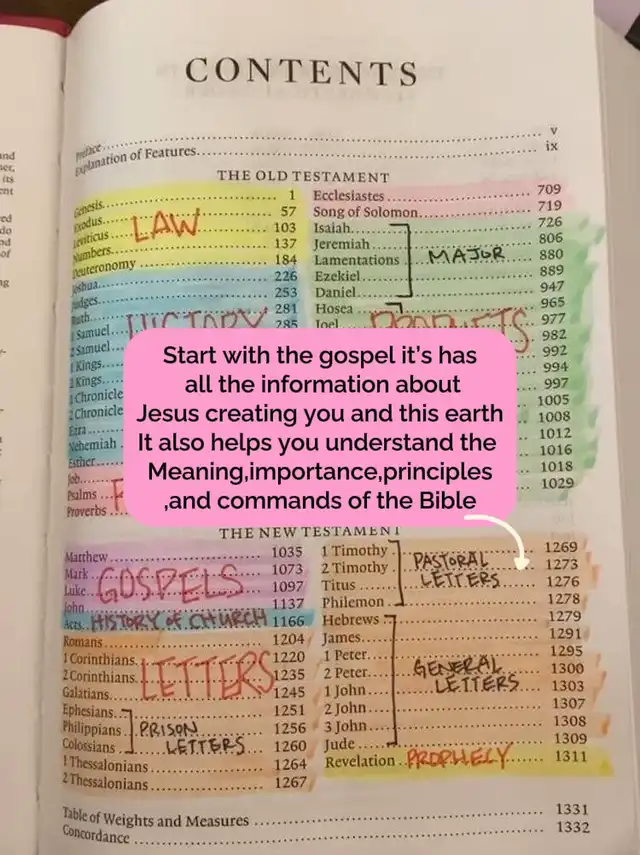 CONTENTS
Preface v
Explanation of Features ix
THE OLD TESTAMENT
Genesis 1
Exodus 57
Leviticus 103
Numbers 137
Deuteronomy 184
LAW
Joshua 226
Judges 253
Ruth 281
1 Samuel 285
2 Samuel
1 Kings
2 Kings
1 Chronicle
2 Chronicle
Ezra
Nehemiah
Esther
HISTORY
Job
Psalms
Proverbs
Ecclesiastes 709
Song of Solomon 719
Isaiah 726
Jeremiah 806
Lamentations 880
Ezekiel 889
Daniel 947
MAJOR
Hosea 965
Joel 977
982
992
994
997
1005
1008
1012
1016
1018
1029
PROPHETS
Start with the gospel it's has
all the information about
Jesus creating you and this earth
It also helps you understand the
Meaning,importance,principles
,and commands of the Bible
THE NEW TESTAMENT
Matthew 1035
Mark 1073
Luke 1097
John 1137
GOSPELS
Acts HISTORY OF CHURCH 1166
Romans 1204
1 Corinthians 1220
2 Corinthians 1235
Galatians 1245
LETTERS
Ephesians 1251
Philippians 1256
Colossians 1260
PRISON
LETTERS
1 Thessalonians 1264
2 Thessalonians 1267
1 Timothy 1269
2 Timothy 1273
Titus 1276
Philemon 1278
PASTORAL
LETTERS
Hebrews 1279
James 1291
1 Peter 1295
2 Peter 1300
1 John 1303
2 John 1307
3 John 1308
Jude 1309
GENERAL
LETTERS
Revelation PROPHECY 1311
Table of Weights and Measures 1331
Concordance 1332